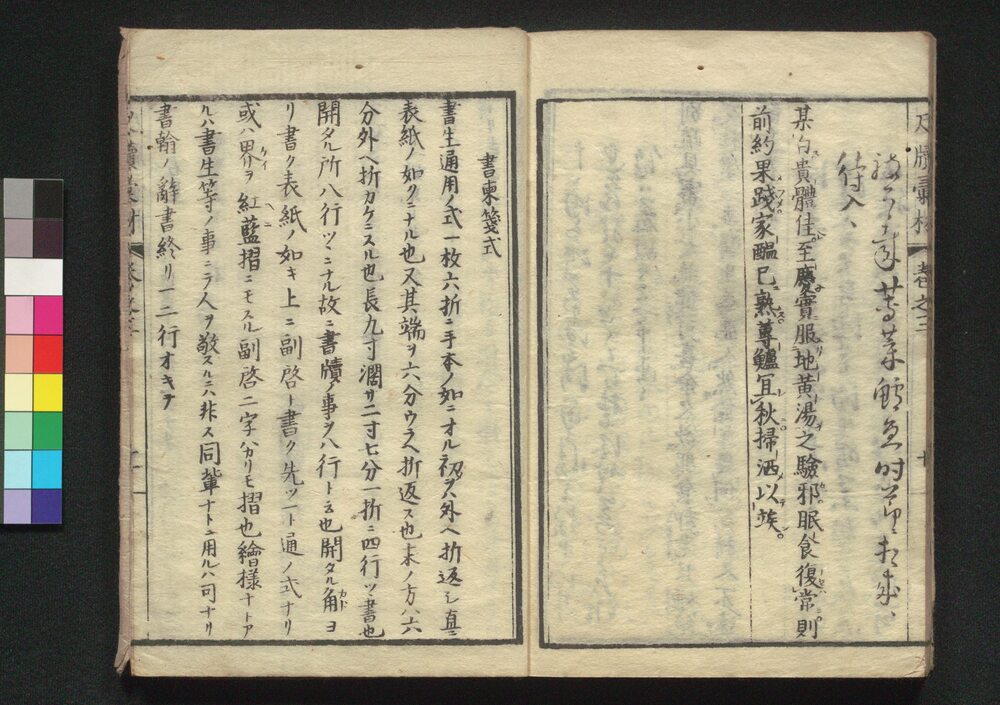 尺牘彙材 巻之三 十
待入、
某白貴體佳至慶實服地黄湯之驗邪眠食復常則
前約果踐家醖已熟蓴鱸冝秋掃洒以竢。
書柬箋式
書生通用ノ式一枚六折ニ手本ノ如ニオル初ヲハ外ヘ折返シ真ニ
表紙ノ如クニナル也又其端ヲ六分ウラヘ折返ス也末ノ方ハ六
分外ヘ折カケニスル也長九寸濶サ二寸七分一折ニ四行ツヽ書也
開タル所八行ツヽニナル故ニ書牘ノ事ヲ八行トモ云也開タル角カドヨ
リ書ク表紙ノ如キ上ニ副啓ト書ク先ツ一ト通ノ式ナリ
或ハ界ケイヲ紅ベニ藍摺ニモスル副啓二字バカリモ摺也繪様ナトア
ルハ書生等ノ事ニテ人ヲ敬スルニハ非ス同輩ナトニ用ルハ可ナリ
書翰ノ辭書終リ一二行オキテ